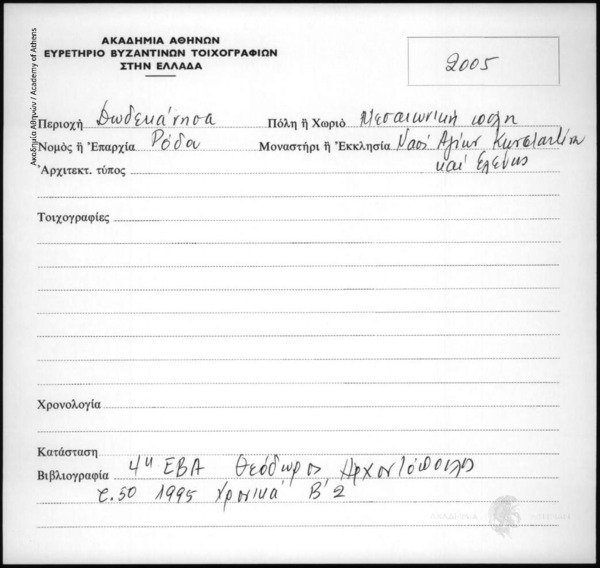 ΑΚΑΔΗΜΙΑ ΑΘΗΝΩΝ
ΕΥΡΕΤΗΡΙΟ ΒΥΖΑΝΤΙΝΩΝ ΤΟΙΧΟΓΡΑΦΙΩΝ
ΣΤΗΝ ΕΛΛΑΔΑ
2005
Ακαδημία Αθηνών / Academy of Athens
Περιοχή Δωδεκάνησα Πόλη ἤ Χωριό Μεσαιωνική πόλη
Νομός ἤ Ἐπαρχία Ρόδου Μοναστήρι ἤ Ἐκκλησία Ναός Αγίων Κωνσταντίνου
και Ελένης
Ἀρχιτεκτ. τύπος
Τοιχογραφίες
Χρονολογία
Κατάσταση
Βιβλιογραφία 4η ΕΒΑ Θεόδωρος Αρχοντόπουλος
τ.50 1995 Χρονικά Β'2
ΑΚΑΔΗΜΙΑ ΑΘΗΝΩΝ